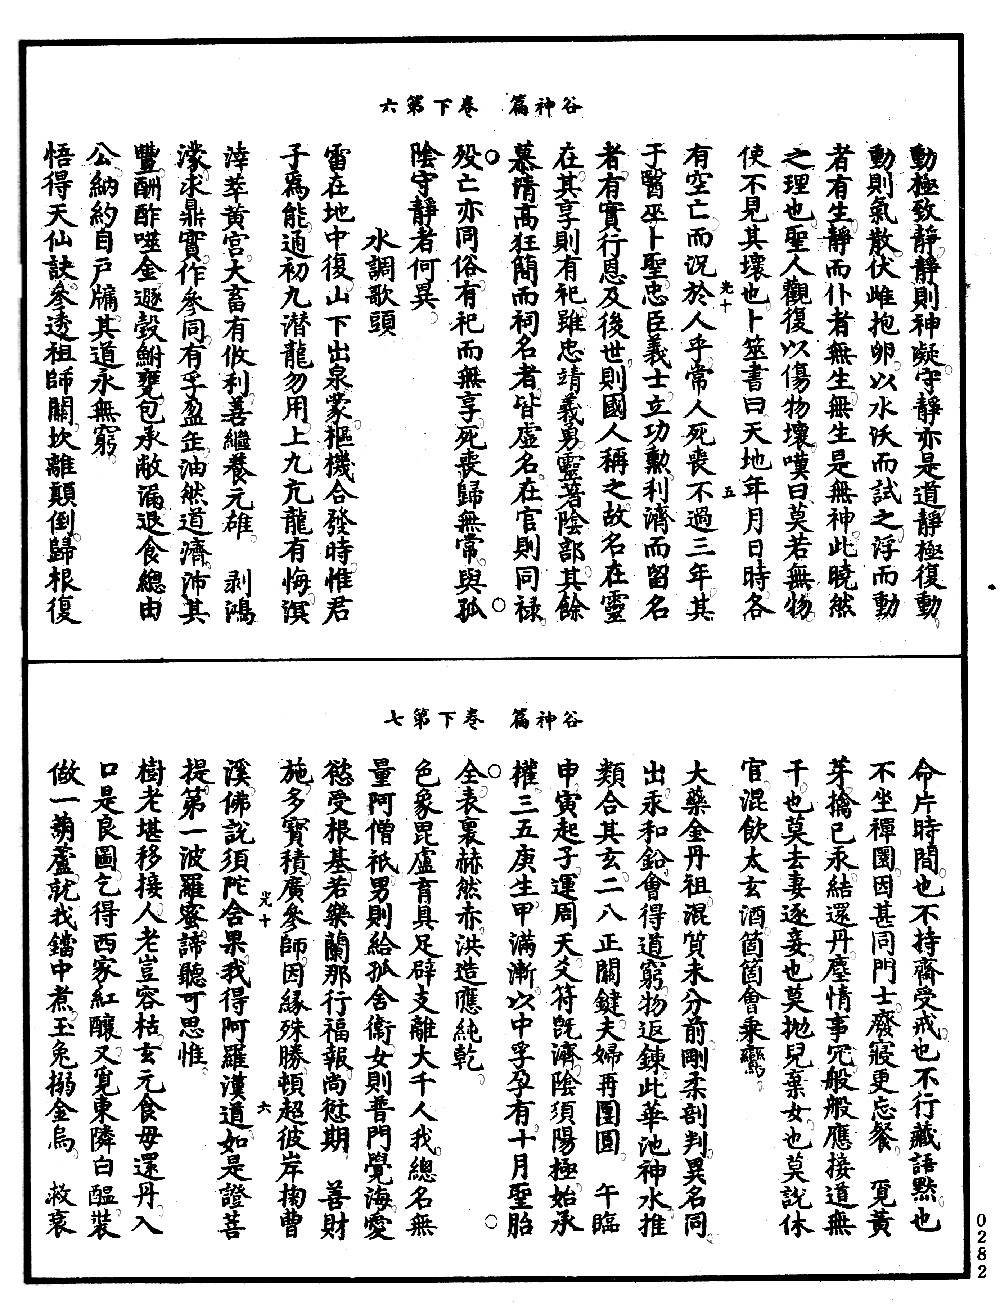 谷神篇　卷下第六
動極致靜靜則神凝守靜亦是道靜極復動
動則氣散伏雌抱卵以水沃而試之浮而動
者有生靜而仆者無生無生是無神此曉然
之理也聖人觀復以傷物壞嘆曰莫若無物
使不見其壞也卜筮書曰天地年月日時各
有空亡而況於人乎常人死喪不過三年其
于醫巫卜聖忠臣義士立功勳利濟而留名
者有實行恩及後世則國人稱之故名在靈
在其享則有祀雖忠靖義勇靈著陰部其餘
慕隋高狂簡而祠名者皆虛名在官則同祿
歿亡亦同俗有祀而無享死喪歸無常與孤
陰守靜者何異
水調歌頭
雷在地中復山下出泉蒙樞機合發時惟君
子爲能通初九潛龍勿用上九亢龍有悔溟
涬萃黃宮大畜有攸利善繼養元雄　剥鴻
濛求鼎實作參同有孚盈缶油然道濟沛其
豐酬酢噬金遯敦鮒甕包承敝漏退食總由
公納約自戶牖其道永無窮
悟得天仙訣參透祖師關坎離顛倒歸根復
谷神篇　卷下第七
命片時間也不持齋受戒也不行藏語默也
不坐禪圜因甚同門士廢寢更忘餐　覓黃
芽擒己汞結還丹塵情事冗般般應接道無
干也莫去妻逐妾也莫抛兒棄女也莫說休
官混飲太玄酒箇箇會乘鸞
大藥金丹祖混質未分前剛柔剖判異名同
出汞和鉛會得道窮物返鍊此華池神水推
類合其玄二八正關鍵夫婦再團圓　午臨
申寅起子運周天爻符旣濟陰須陽極始承
權三五庚生甲滿漸以中孚孕有十月聖胎
全表裏赫然赤洪造應純乾
色象毘盧育具足辟支離大千人我總名無
量阿僧祇男則給孤舍衞女則普門覺海愛
慾受根基若樂蘭那行福報尚愆期　善財
施多寶積廣參師因緣殊勝頓超彼岸掬曹
溪佛說須陀含果我得阿羅漢道如是證菩
提第一波羅蜜諦聽可思惟
樹老堪移接人老豈容枯玄元食母還丹入
口是良圖乞得西家紅釀又覓東隣白醞裝
做一葫蘆就我鐺中煮玉兔搦金烏　救衰
光十
五
光十
六
0282